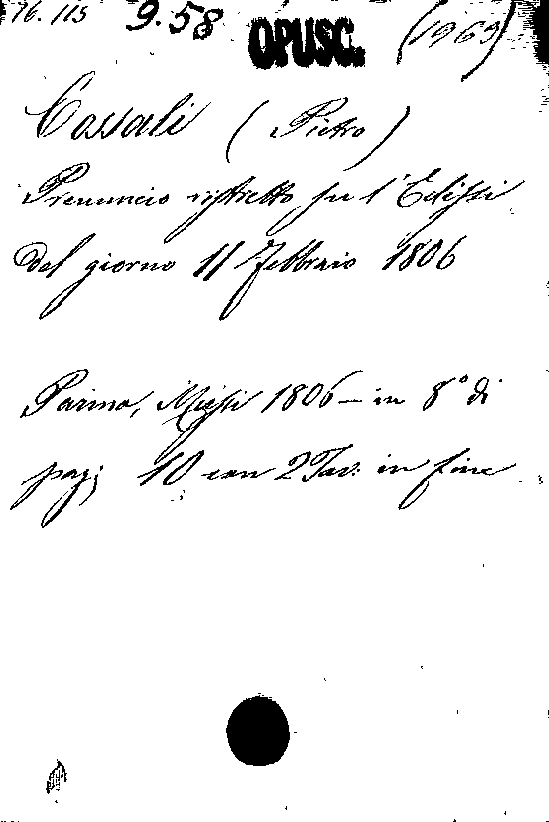 76. 115 9.58 OPUSC. (1969)
Cossali (Pietro)
Prenuncio ristretto su l'Eclissi
del giorno 11 Febbraio 1806
Parma, Mussi 1806 — in 8° di
pag; 10 con 2 Tav: in fine